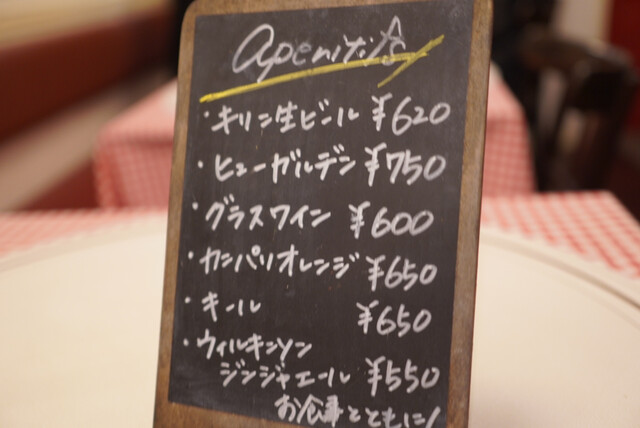 aperitifs
・キリン生ビール ¥620
・ヒューガルデン ¥750
・グラスワイン ¥600
・カンパリオレンジ ¥650
・キール ¥650
・ウィルキンソン
ジンジャエール ¥550
お食事とともに!